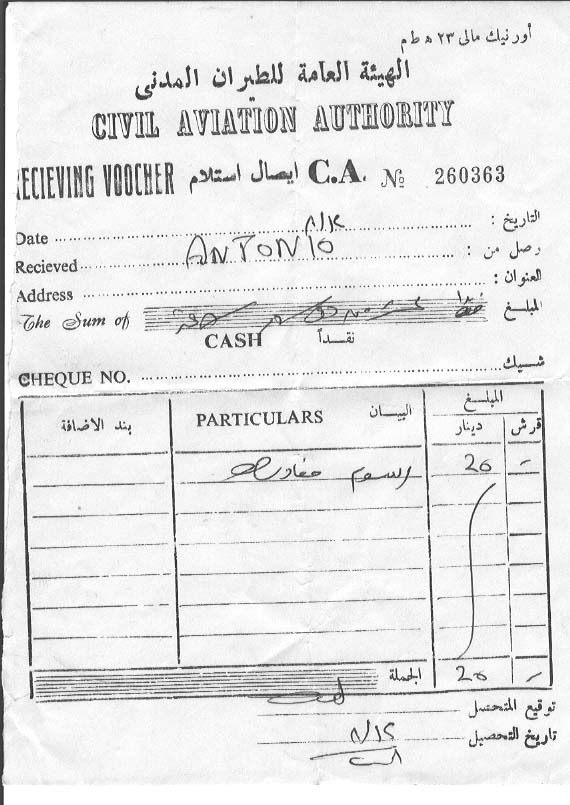 أورنيك مالى ٢٣ ه ط م
الهيئة العامة للطيران المدنى
CIVIL AVIATION AUTHORITY
RECIEVING VOUCHER ايصال استلام C.A. № 260363
Date ٨/١٢ التاريخ :
Recieved ANTONIO وصل من :
Address العنوان :
The Sum of المبلغ
CASH نقداً
CHEQUE NO. شيك
المبلغ
بند الاضافة PARTICULARS البيان دينار قرش
رسوم مغادرة 20 -
الجملة 20 -
توقيع المتحصل
تاريخ التحصيل ٨/١٢